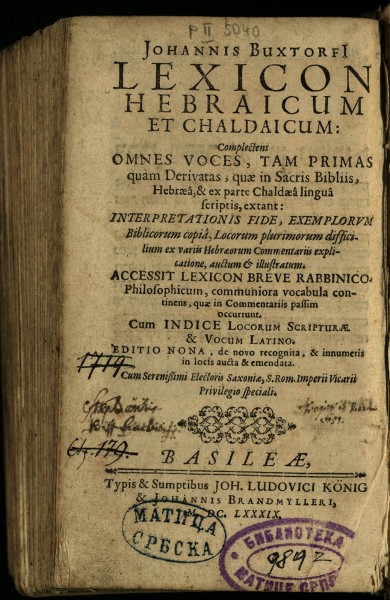 P II 5040
JOHANNIS BUXTORFI
LEXICON
HEBRAICUM
ET CHALDAICUM:
Complectens
OMNES VOCES, TAM PRIMAS
quàm Derivatas, quæ in Sacris Bibliis,
Hebræâ, & ex parte Chaldæâ linguâ
scriptis, extant:
INTERPRETATIONIS FIDE, EXEMPLORVM
Biblicorum copiâ, Locorum plurimorum diffici-
lium ex variis Hebræorum Commentariis expli-
catione, auctum & illustratum.
ACCESSIT LEXICON BREVE RABBINICO-
Philosophicum, communiora vocabula con-
tinens, quæ in Commentariis passim
occurrunt.
Cum INDICE LOCORUM SCRIPTURÆ
& VOCUM LATINO.
EDITIO NONA, de novo recognita, & innumeris
in locis aucta & emendata.
1719.
Cum Serenissimi Electoris Saxoniæ, S. Rom. Imperii Vicarii
Privilegio speciali.
BASILEÆ,
Typis & Sumptibus JOH. LUDOVICI KÖNIG
& JOHANNIS BRANDMYLLERI,
M. DC. LXXXIX.
МАТИЦА
СРБСКА
БИБЛИОТЕКА
9842
МАТИЦЕ СРП